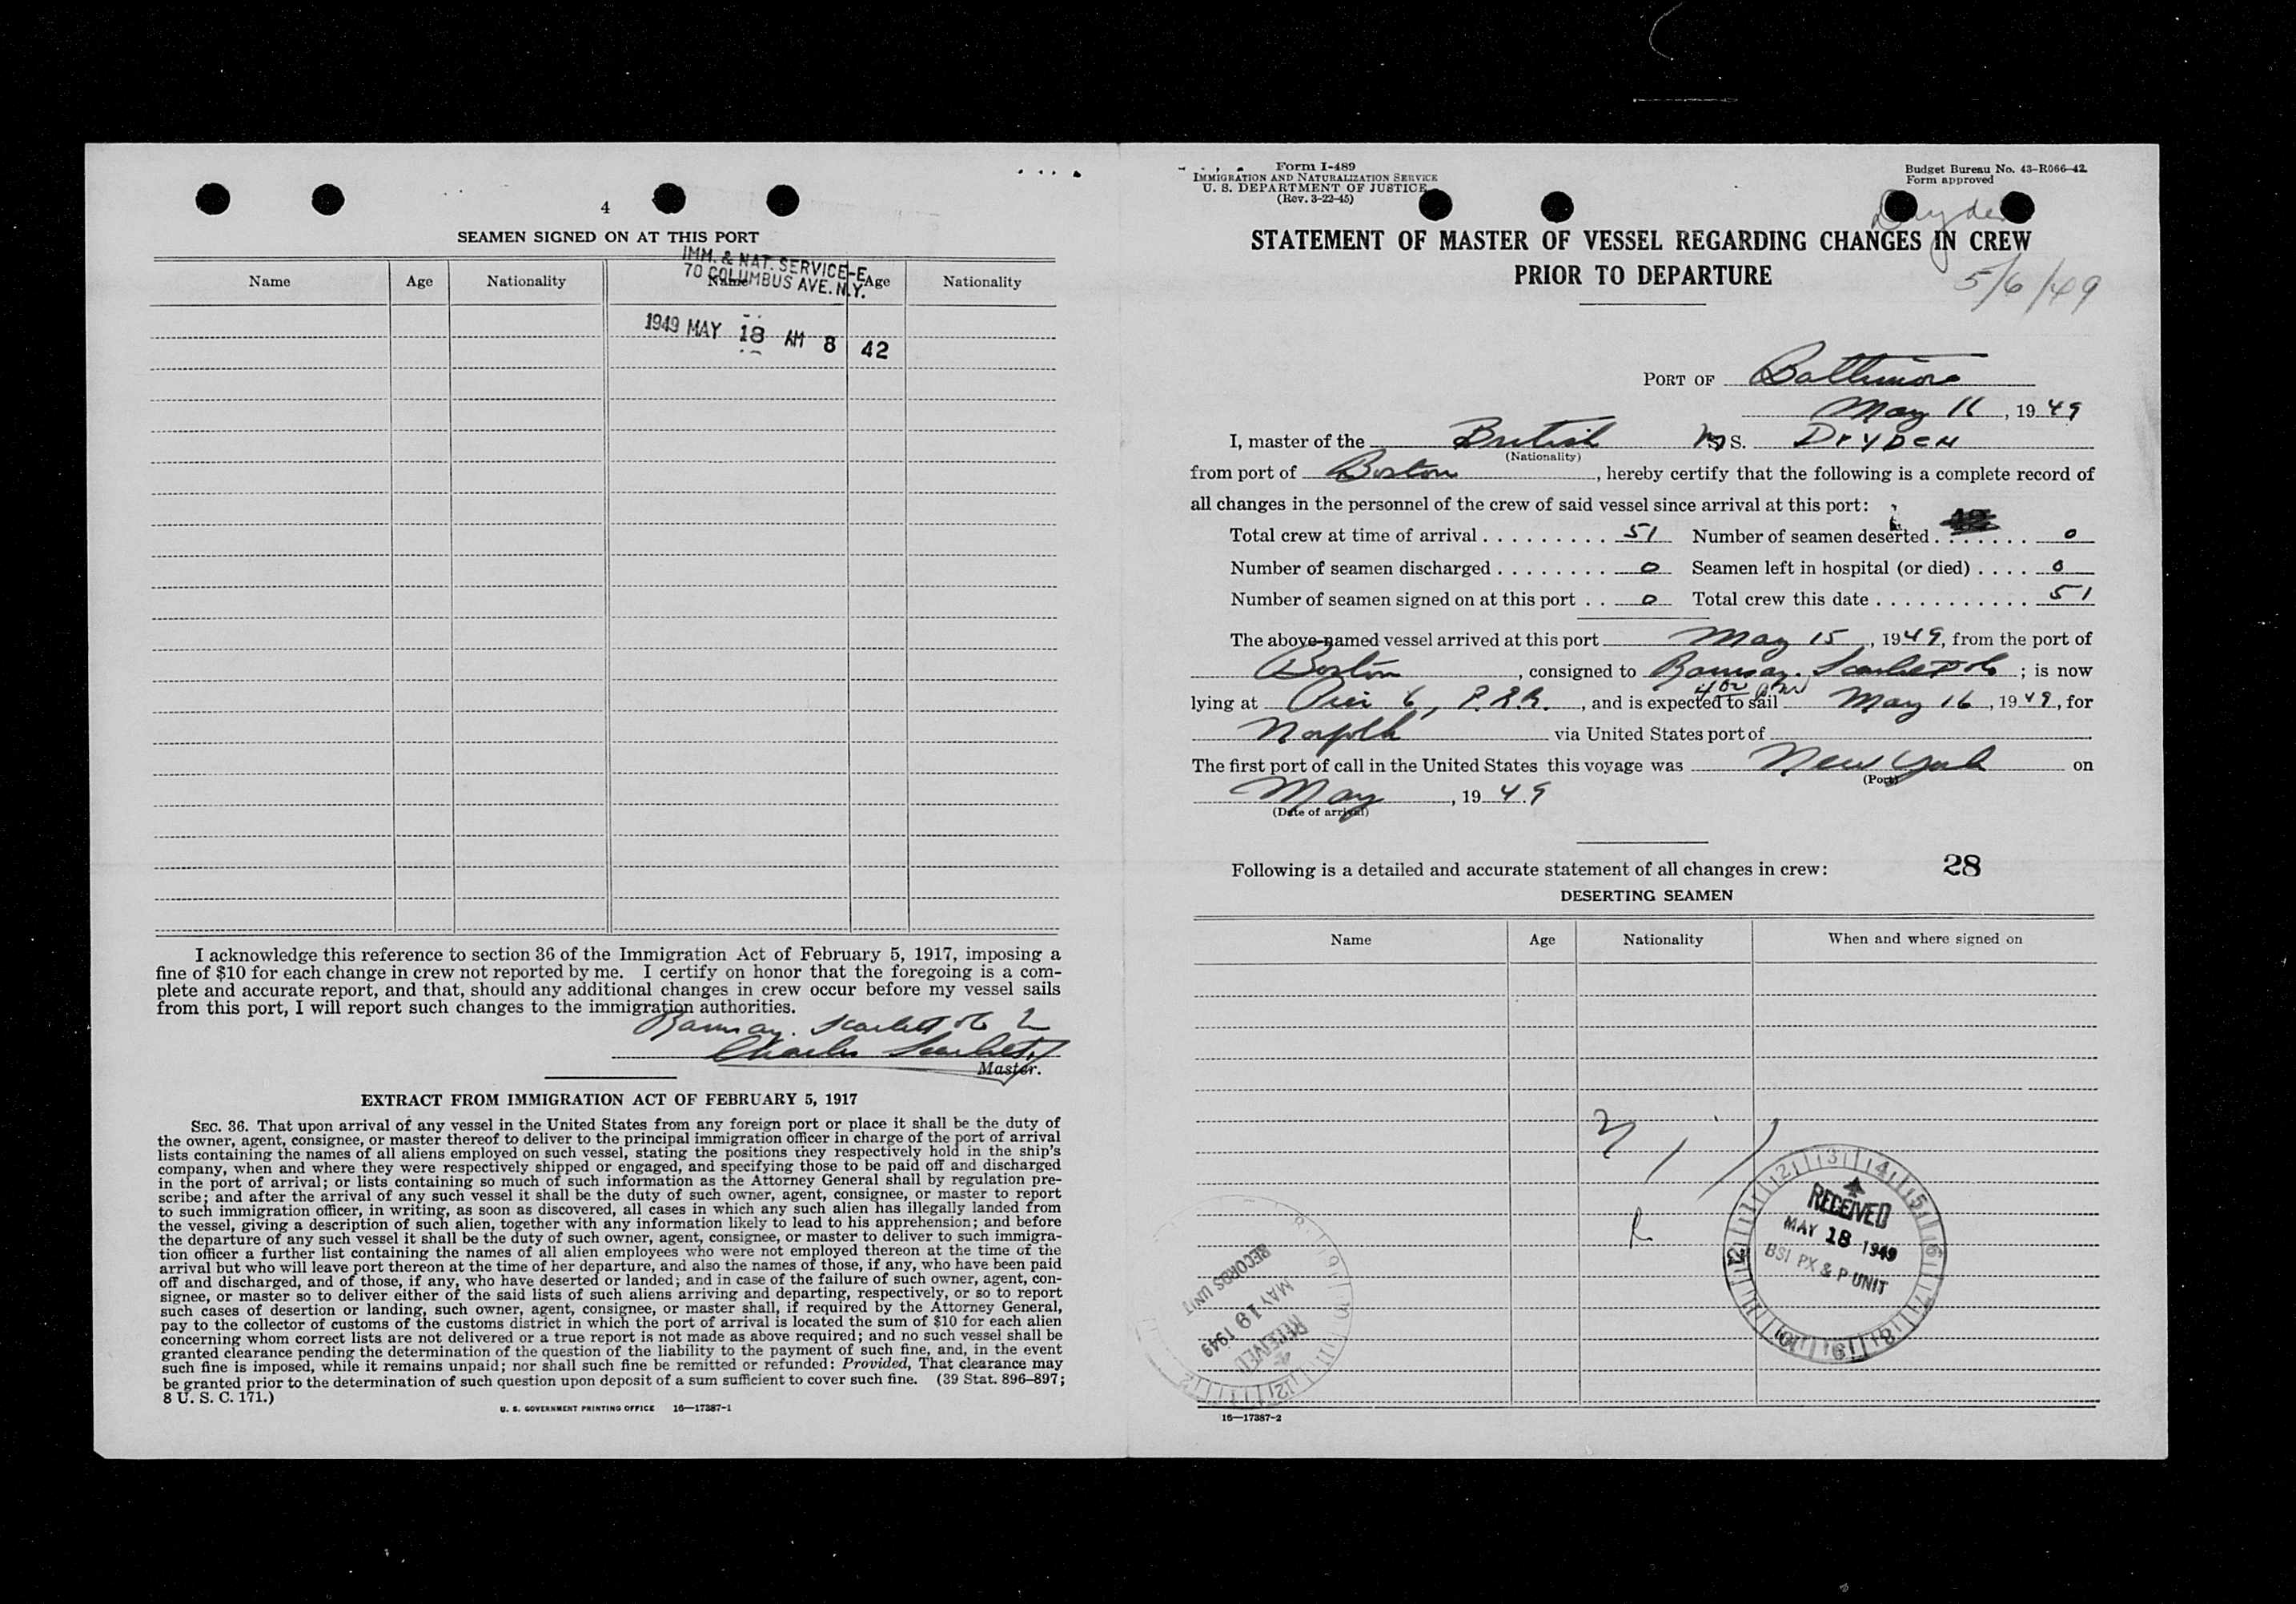 4
SEAMEN SIGNED ON AT THIS PORT
IMM. & NAT. SERVICE-E
70 COLUMBUS AVE. N.Y.
Name Age Nationality Name Age Nationality
1949 MAY 18 AM 8 42
I acknowledge this reference to section 36 of the Immigration Act of February 5, 1917, imposing a
fine of $10 for each change in crew not reported by me. I certify on honor that the foregoing is a com-
plete and accurate report, and that, should any additional changes in crew occur before my vessel sails
from this port, I will report such changes to the immigration authorities.
Ramsay. Scarlett & Co
Charles Scarlett
Master.
EXTRACT FROM IMMIGRATION ACT OF FEBRUARY 5, 1917
SEC. 36. That upon arrival of any vessel in the United States from any foreign port or place it shall be the duty of
the owner, agent, consignee, or master thereof to deliver to the principal immigration officer in charge of the port of arrival
lists containing the names of all aliens employed on such vessel, stating the positions they respectively hold in the ship's
company, when and where they were respectively shipped or engaged, and specifying those to be paid off and discharged
in the port of arrival; or lists containing so much of such information as the Attorney General shall by regulation pre-
scribe; and after the arrival of any such vessel it shall be the duty of such owner, agent, consignee, or master to report
to such immigration officer, in writing, as soon as discovered, all cases in which any such alien has illegally landed from
the vessel, giving a description of such alien, together with any information likely to lead to his apprehension; and before
the departure of any such vessel it shall be the duty of such owner, agent, consignee, or master to deliver to such immigra-
tion officer a further list containing the names of all alien employees who were not employed thereon at the time of the
arrival but who will leave port thereon at the time of her departure, and also the names of those, if any, who have been paid
off and discharged, and of those, if any, who have deserted or landed; and in case of the failure of such owner, agent, con-
signee, or master so to deliver either of the said lists of such aliens arriving and departing, respectively, or so to report
such cases of desertion or landing, such owner, agent, consignee, or master shall, if required by the Attorney General,
pay to the collector of customs of the customs district in which the port of arrival is located the sum of $10 for each alien
concerning whom correct lists are not delivered or a true report is not made as above required; and no such vessel shall be
granted clearance pending the determination of the question of the liability to the payment of such fine, and, in the event
such fine is imposed, while it remains unpaid; nor shall such fine be remitted or refunded: Provided, That clearance may
be granted prior to the determination of such question upon deposit of a sum sufficient to cover such fine. (39 Stat. 896–897;
8 U. S. C. 171.)
U. S. GOVERNMENT PRINTING OFFICE 16—17387-1
Form I-489
IMMIGRATION AND NATURALIZATION SERVICE
U. S. DEPARTMENT OF JUSTICE
(Rev. 3-22-45)
Budget Bureau No. 43-R066-42.
Form approved
Dryden
STATEMENT OF MASTER OF VESSEL REGARDING CHANGES IN CREW
PRIOR TO DEPARTURE
5/6/49
PORT OF Baltimore
May 16, 1949
I, master of the British M S. DRYDEN
(Nationality)
from port of Boston, hereby certify that the following is a complete record of
all changes in the personnel of the crew of said vessel since arrival at this port:
Total crew at time of arrival . . . . . . . . . 51 Number of seamen deserted . . . . . . . 0
Number of seamen discharged . . . . . . . . 0 Seamen left in hospital (or died) . . . . 0
Number of seamen signed on at this port . . 0 Total crew this date . . . . . . . . . . . . 51
The above-named vessel arrived at this port May 15, 1949, from the port of
Boston, consigned to Ramsay. Scarlett & Co; is now
lying at Pier 6, P.R.R., and is expected to sail 4 00 PM May 16, 1949, for
Norfolk via United States port of
The first port of call in the United States this voyage was New York on
(Port)
May, 1949
(Date of arrival)
Following is a detailed and accurate statement of all changes in crew:
28
DESERTING SEAMEN
Name Age Nationality When and where signed on
RECEIVED
MAY 18 1949
BSI PX & P UNIT
RECEIVED
MAY 19 1949
RECORDS UNIT
16—17387-2